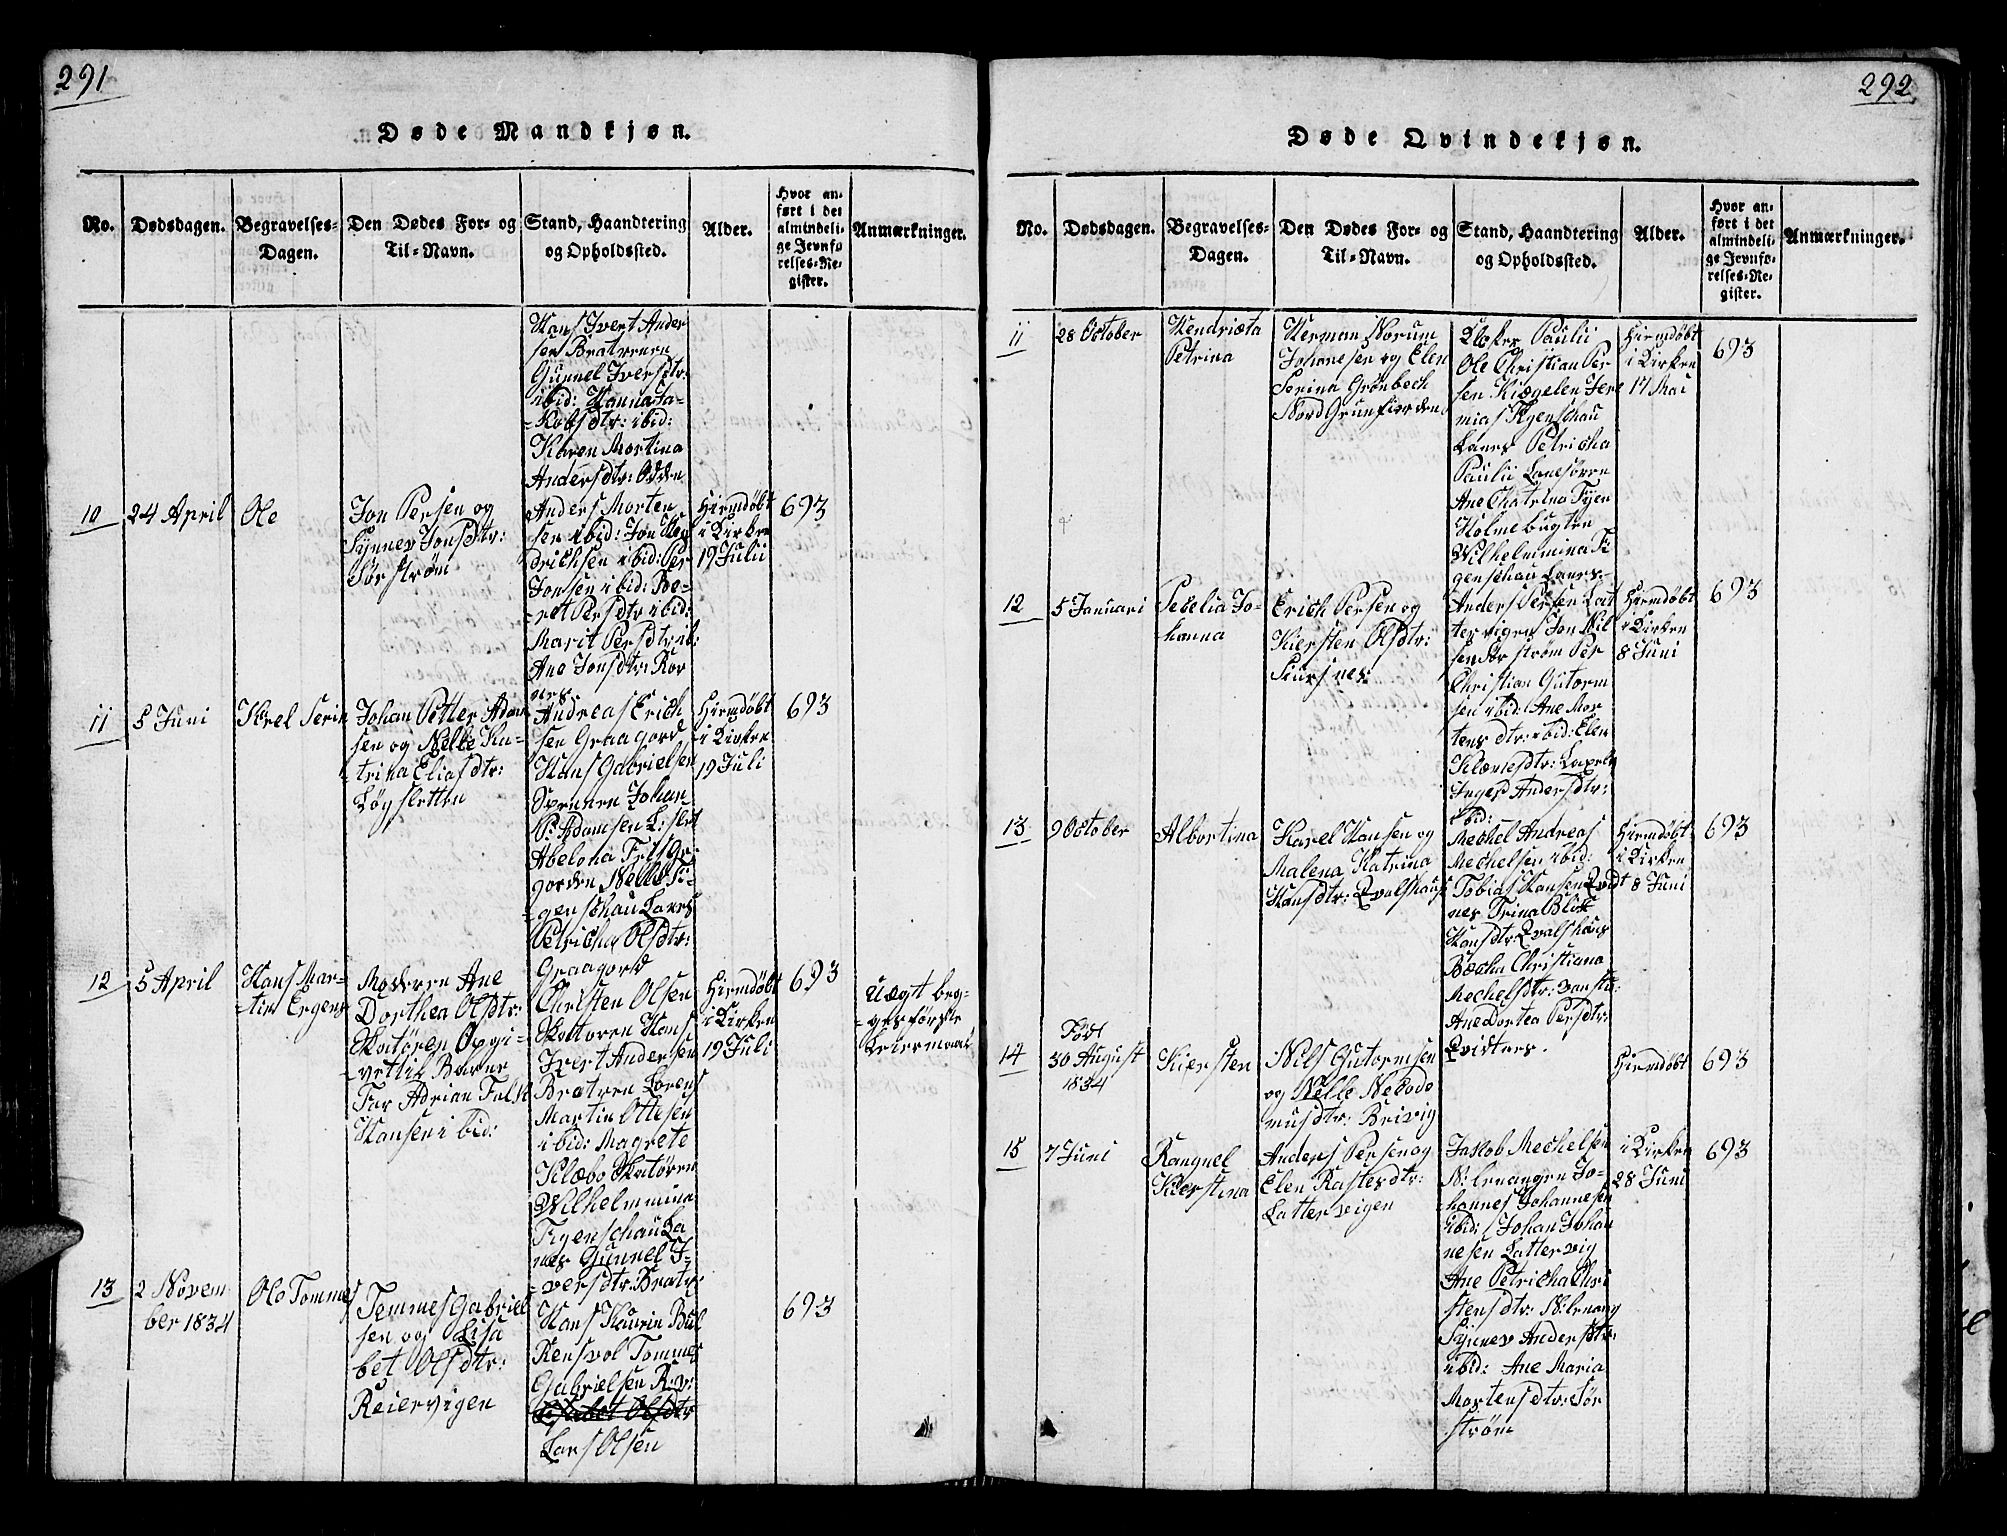 291
Døde Mandkjøn.
No.
Dødsdagen.
Begravelses-
Dagen.
Den Dødes For- og
Til-Navn.
Stand, Haandtering
og Opholdssted.
Alder.
Hvor an-
ført i det
almindeli-
ge Jevnfø
relses-Re-
gister.
Anmærkninger.
Hans Ivert Ander
sen Bratrenen
Gunnel Iversdtr:
ibid: Hanna Ja-
-kobsdtr: ibid:
Karen Mortina
Andersdtr: Odden
10
24 April
Ole
Jon Persen og
Synnev Jonsdtr:
Sørstrøm
Anders Morten
sen ibid: Jon Hen
drichsen ibid: Per
Jonsen ibid: Be-
-ret Persdtr ibid:
Marit Persdtr ib:
Ane Jonsdtr: Kor
nes
Hiemdøbt
i Kirken
19 Julii
693
11
5 Juni
Karel Serin
Johan Petter Adam
sen og Nelle Ka-
trina Eliasdtr:
Løgsletten
Andreas Erich
sen Graagord
Hans Gabrielsen
Svennen Johan
P: Adamsen L: slet
Abelona Friis Gr:
gorden Nelle Fi-
-genschau Lanes
Petricha Olsdtr:
Graagord
Hiemdøbt
i Kirken
19 Juli
693
12
5 April
Hans Mar-
-tin Ergens
Moderen Ane
Dorthea Olsdtr:
Skatøren Opgi-
-vettil Barne
Far Adrian Falsk
Hansen i bid:
Christen Olsen
Skattøren Hans
Ivert Andersen
Bratren Lorens
Martin Ottesen
ibid: Magrete
Klæbo Skatøren
Wilhelmmina
Figenschau La
nes Gunnel I-
-versdtr: Bratr:
Hiemdøbt
i Kirken
19 Juli
693
Uægt beg-
-ges første
Leiermaal
13
2 Novem
ber 1834
Ole Tommes
Temmes Gabriel
sen og Lisa
bet Olsdtr:
Reiervigen
Hans Kaurin Bul
Rensvol Tommes
Gabrielsen R:v:
Lars Olsen
693
292
Døde Qvindekjøn.
No.
Dødsdagen.
Begravelses-
Dagen.
Den Dødes For- og
Til-Navn.
Stand, Haandtering
og Opholdssted.
Alder.
Hvor an-
ført i det
almindeli-
ge Jevnfø-
relses-Re-
gister.
Anmærkninger.
11
28 October
Hendriæta
Petrina
Herman Norum
Johanesen og Elen
Serina Grønbech
Nord Grunfiorden
Kloker Paulii
Ole Christian Per
sen Kiægelen Jere
mias Figenschau
Lanes Petricha
Paulii Lanesøren
Ane Chatrina Fyen
Holmebugten
Wilhelmmina Fi
genschau Lanes
Hiemdøbt
i Kirken
17 Mai
693
12
5 Januari
Sebelia Jo-
hanna
Erich Persen og
Kiersten Olsdtr:
Skursnes
Anders Persen Lat
tervigen Jon Nil
sen Sørstrøm Per
Christian Gutorm
sen ibid: Ane Mor
tens dtr: ibid: Elen
Klævnesdtr: Laxelv
Inger Andersdtr:
ibid:
Hiemdøbt
i Kirken
8 Juni
693
13
9 October
Albortina
Karel Hansen og
Malena Katrina
Hansdtr: Qvalshaus
Mechel Andreas
Mechelsen ibid:
Tobias Hansen Qvidt
nes Trina Blix
Hansdtr: Qvalshaus
Becha Christiana
Mechelsdtr:
Ane Dortea Persdtr:
Qvidtnes.
Hiemdøbt
i Kirken
8 Juni
693
14
Fød
30 August
1834
Kiersten
Nils Gutormsen
og Nelle Nekodo
musdtr: Breivig
Hiemdøbt
693
15
7 Juni
Rangnel
Kierstina
Anders Persen og
Elen Rastesdtr:
Lattervigen
Jakob Mechelsen
N: lenangen Jo-
hannes Johannesen
ibid: Johan Johan
nesen Lattervig
Ane Petricha Chri
stensdtr: N: lenang
Synnev Andersdtr:
ibid: Ane Maria
Mortensdtr: Sør
strøm
i Kirken
28 Juni
693